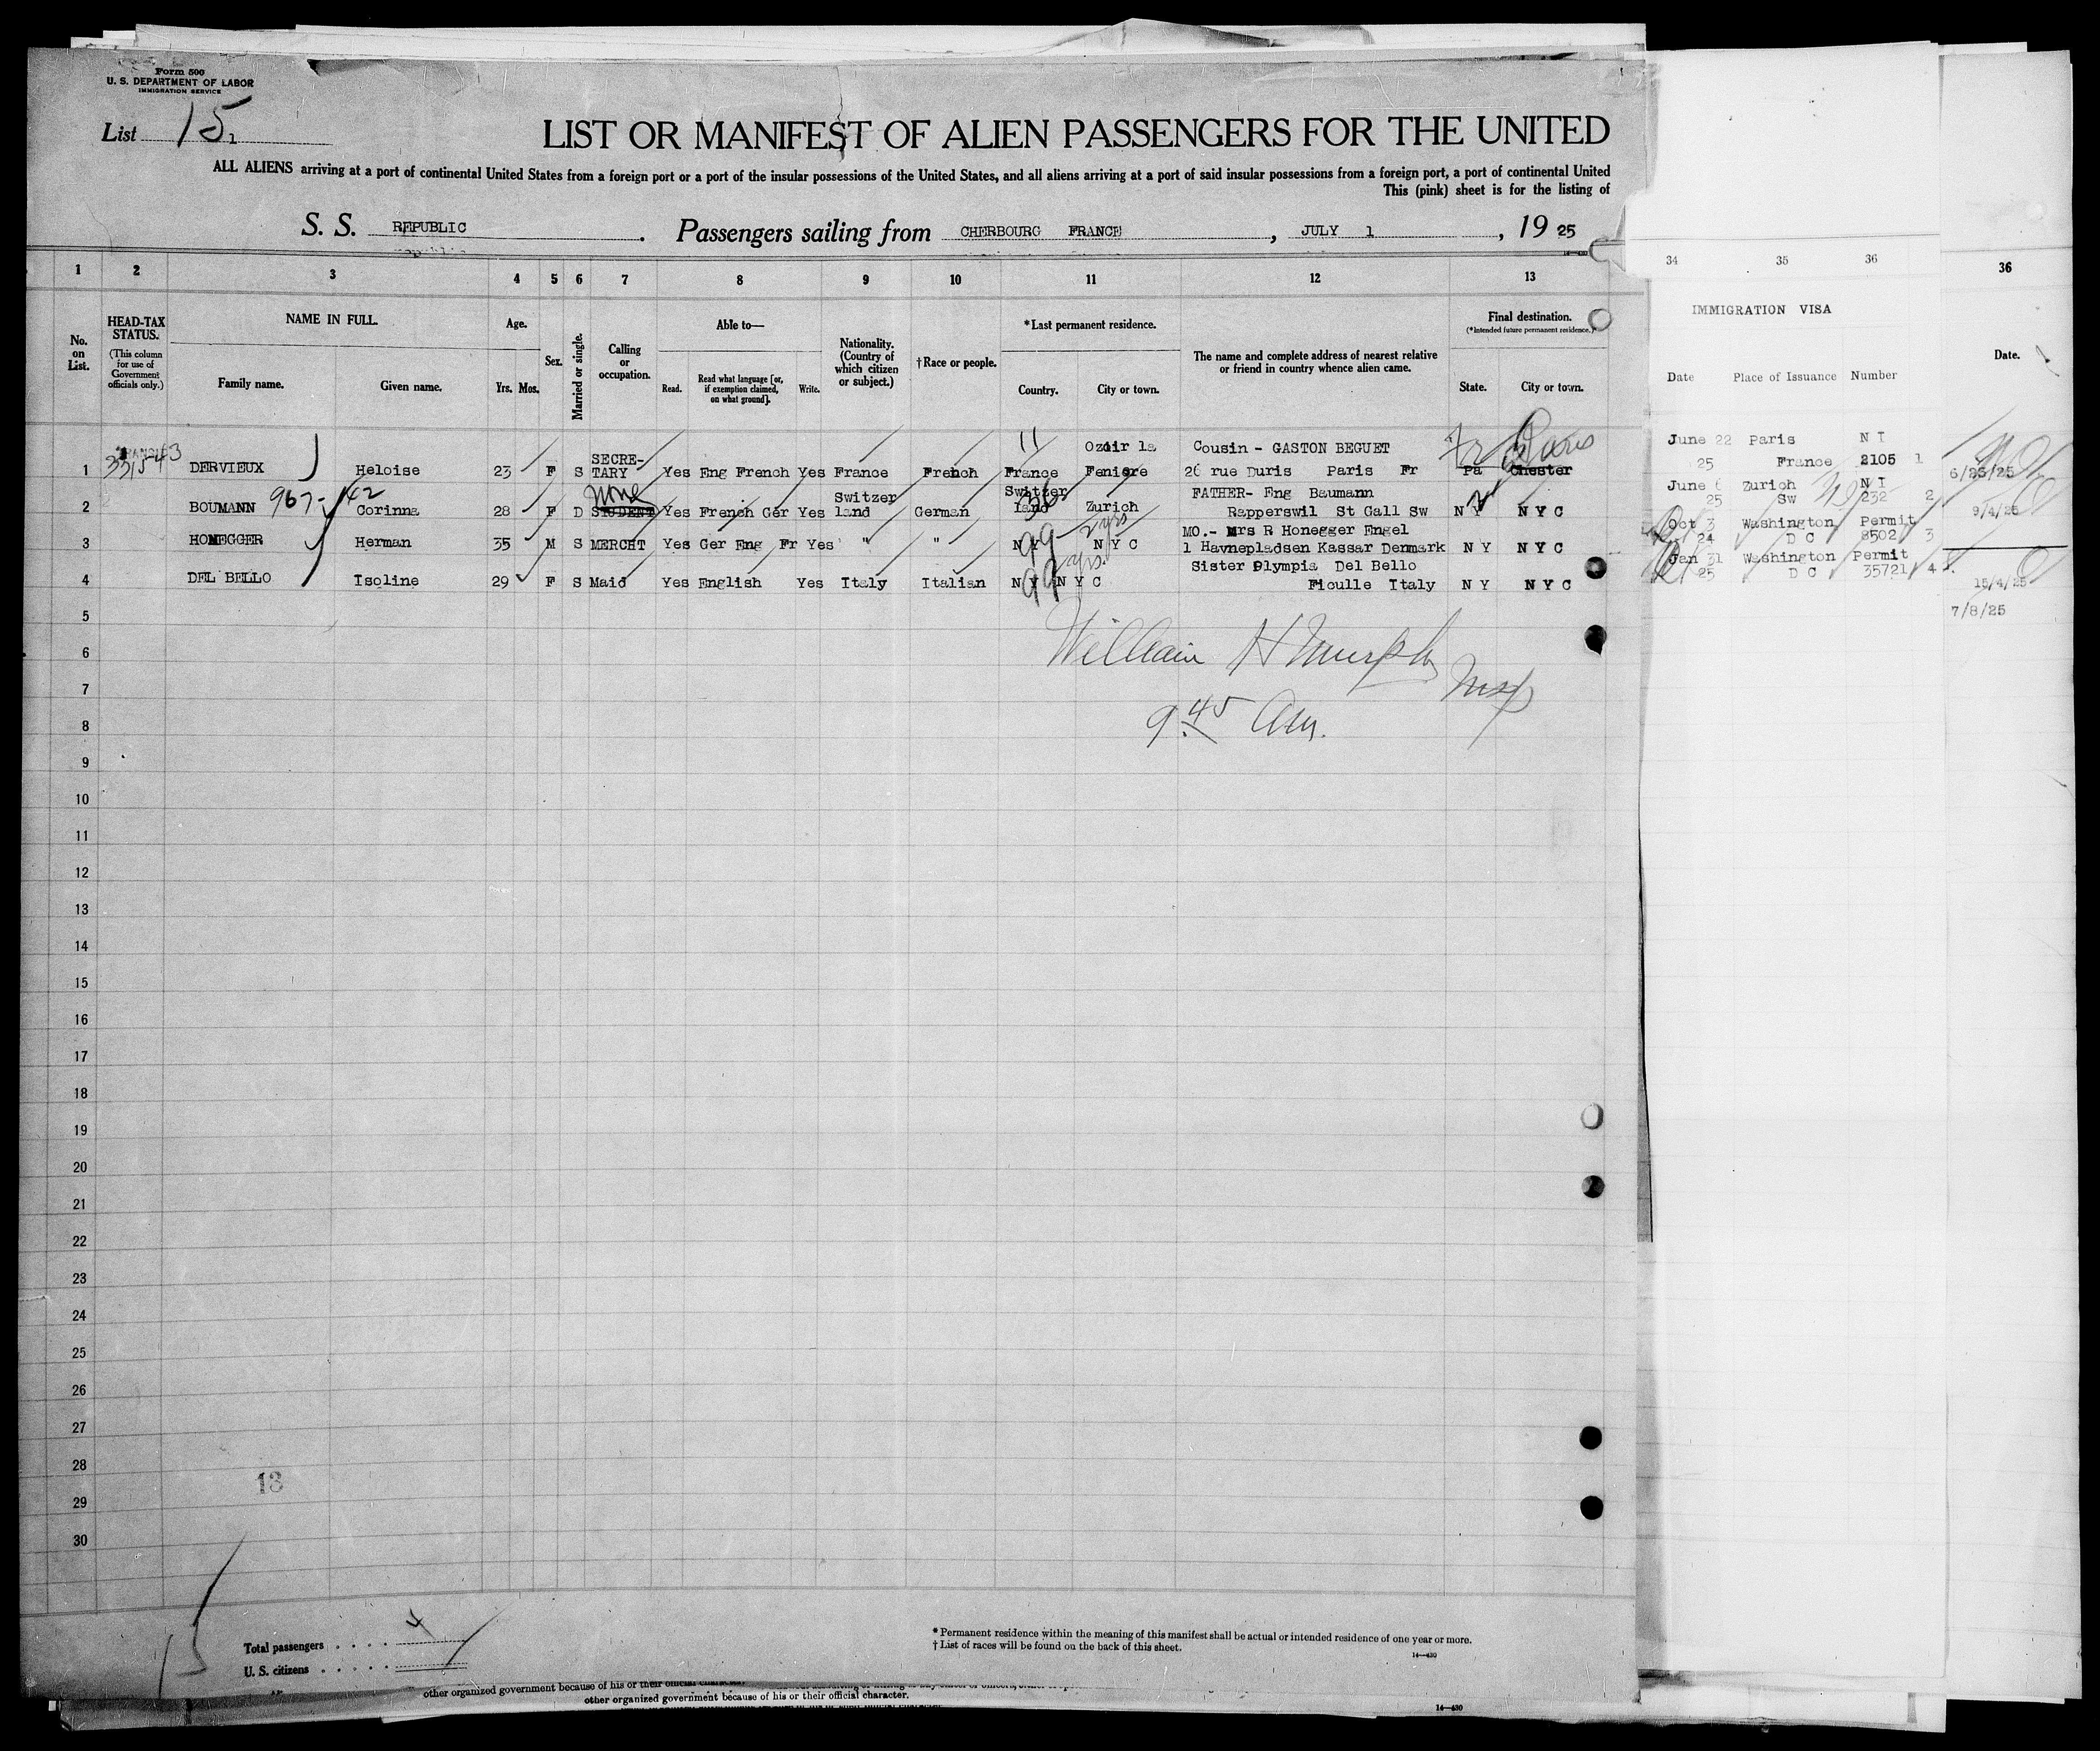 Form 500
U. S. DEPARTMENT OF LABOR
IMMIGRATION SERVICE
List 15
LIST OR MANIFEST OF ALIEN PASSENGERS FOR THE UNITED
ALL ALIENS arriving at a port of continental United States from a foreign port or a port of the insular possessions of the United States, and all aliens arriving at a port of said insular possessions from a foreign port, a port of continental United
This (pink) sheet is for the listing of
S. S. REPUBLIC. Passengers sailing from CHERBOURG FRANCE, JULY 1, 1925
1 2 3 4 5 6 7 8 9 10 11 12 13 34 35 36 36
No. on List.
HEAD-TAX STATUS.
(This column for use of Government officials only.)
NAME IN FULL.
Family name. Given name.
Age.
Yrs. Mos.
Sex.
Married or single.
Calling or occupation.
Able to—
Read. Read what language [or, if exemption claimed, on what ground]. Write.
Nationality. (Country of which citizen or subject.)
†Race or people.
*Last permanent residence.
Country. City or town.
The name and complete address of nearest relative or friend in country whence alien came.
Final destination.
(*Intended future permanent residence.)
State. City or town.
IMMIGRATION VISA
Date Place of Issuance Number
Date.
11 Ozoir la Cousin - GASTON BEGUET Fr Paris June 22 Paris N I
1 DERVIEUX Heloise 23 F S SECRETARY Yes Eng French Yes France French France Feniere 26 rue Duris Paris Fr Pa Chester 25 France 2105 1 6/26/25
967-142 None Switzer Switzer FATHER- Eng Baumann June 6 Zurich N I
2 BOUMANN Corinna 28 F D STUDENT Yes French Ger Yes land German land Zurich Rapperswil St Gall Sw N Y N Y C 25 Sw 232 2 9/4/25
99 2 yrs MO.- Mrs R Honegger Engel Oct 3 Washington Permit
3 HONEGGER Herman 35 M S MERCHT Yes Ger Eng Fr Yes " " N Y N Y C 1 Havnepladsen Kassar Denmark N Y N Y C 24 D C 8502 3
99 yrs. Sister Olympia Del Bello Jan 31 Washington Permit
4 DEL BELLO Isoline 29 F S Maid Yes English Yes Italy Italian N Y N Y C Ficulle Italy N Y N Y C 25 D C 35721 4 15/4/25
5 7/8/25
6 William H Murphy
7 Insp
8 9.45 Am.
9
10
11
12
13
14
15
16
17
18
19
20
21
22
23
24
25
26
27
28
13
29
30
15
Total passengers . . . . . 4
U. S. citizens . . . . . .
* Permanent residence within the meaning of this manifest shall be actual or intended residence of one year or more.
† List of races will be found on the back of this sheet.
14—430
other organized government because of his or their official character.
other organized government because of his or their official character.
14—430